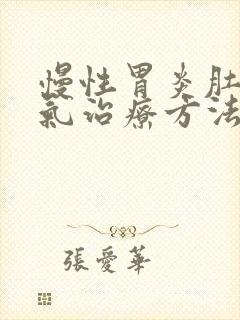 慢性胃炎肚
氣治療方法
張愛華